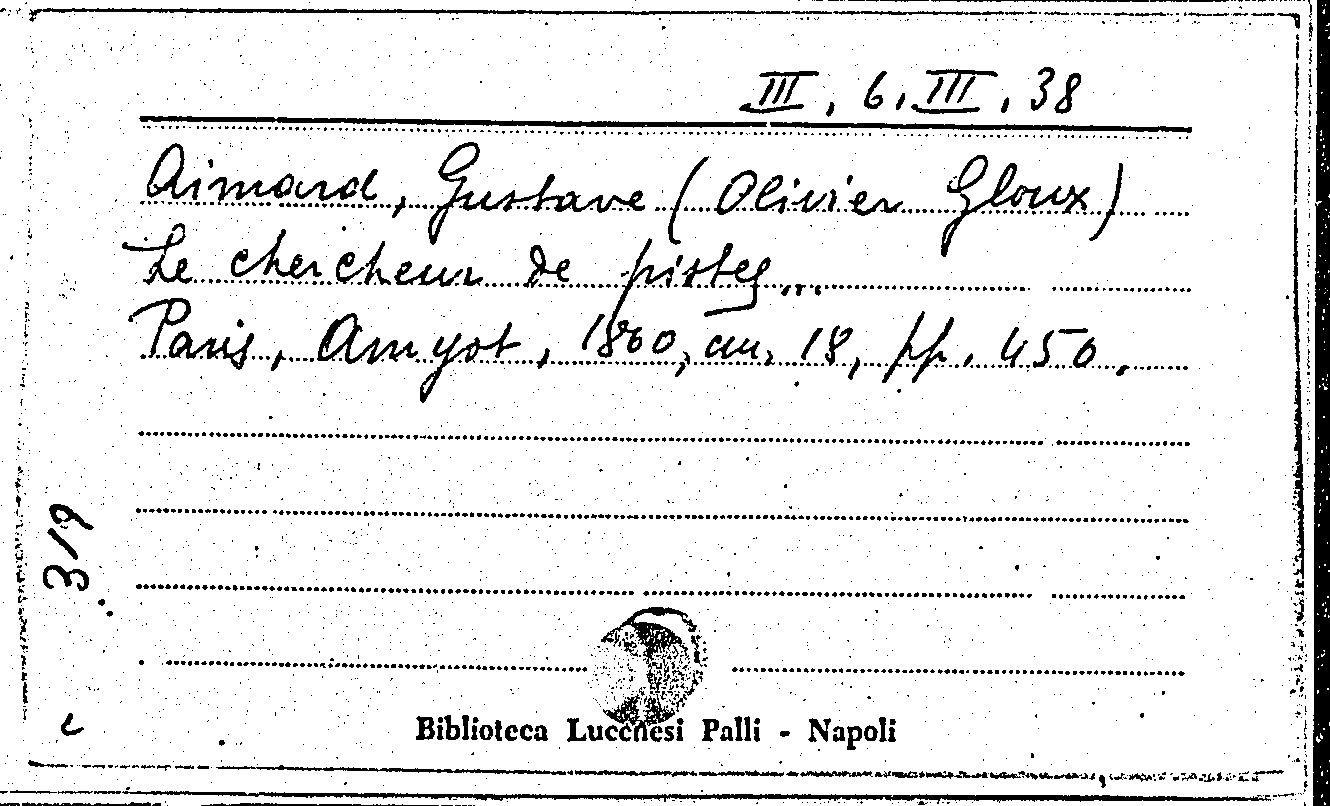 III, 6, III, 38
Aimard, Gustave (Olivier Gloux)
Le chercheur de pistes...
Paris, Amyot, 1860, in 18, pp. 450,
319
c
Biblioteca Lucchesi Palli - Napoli